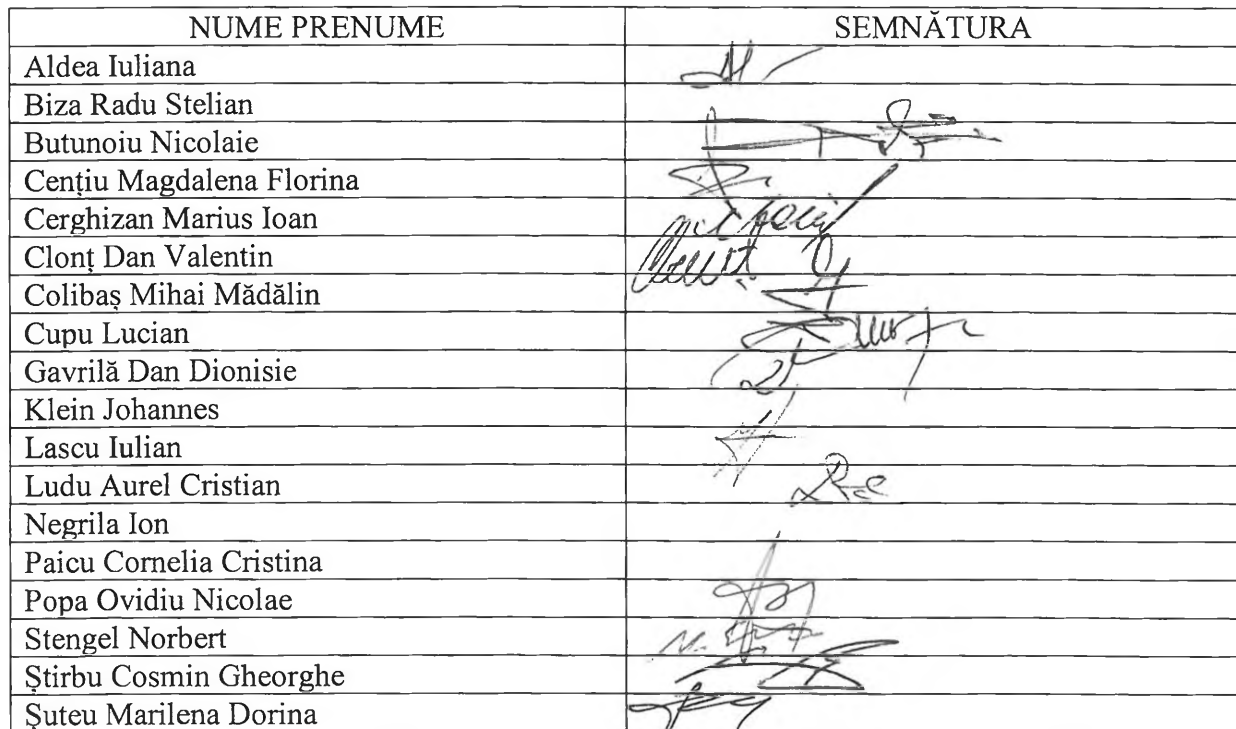 NUME PRENUME SEMNĂTURA
Aldea Iuliana
Biza Radu Stelian
Butunoiu Nicolaie
Cențiu Magdalena Florina
Cerghizan Marius Ioan
Clonț Dan Valentin
Colibaș Mihai Mădălin
Cupu Lucian
Gavrilă Dan Dionisie
Klein Johannes
Lascu Iulian
Ludu Aurel Cristian
Negrila Ion
Paicu Cornelia Cristina
Popa Ovidiu Nicolae
Stengel Norbert
Știrbu Cosmin Gheorghe
Șuteu Marilena Dorina